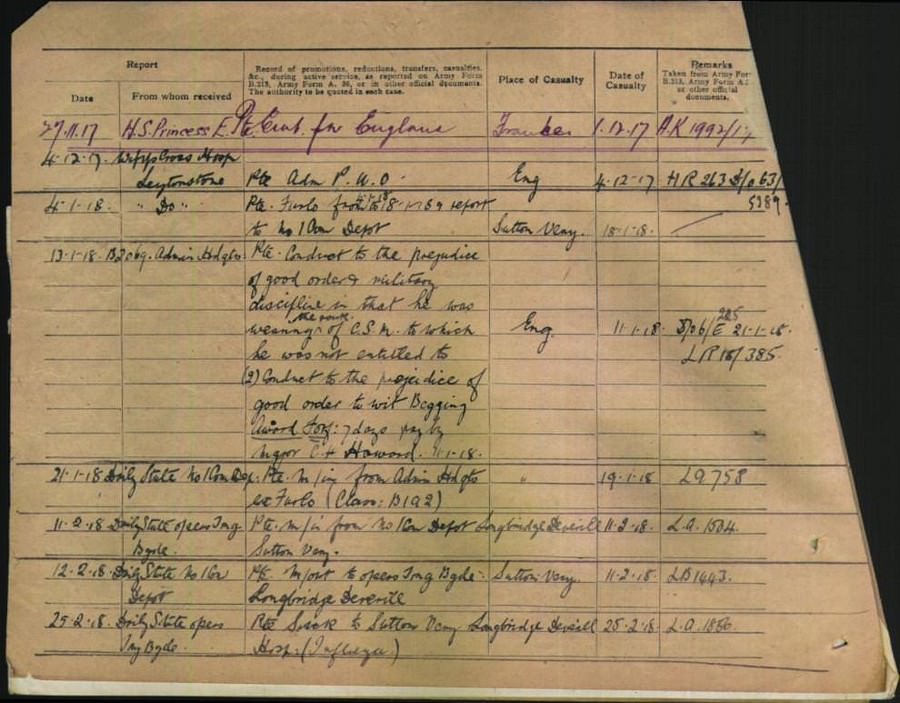 Report
Record of promotions, reductions, transfers, casualties,
&c., during active service, as reported on Army Form
B.213, Army Form A. 36, or in other official documents.
The authority to be quoted in each case.
Place of Casualty
Date of
Casualty
Remarks
Taken from Army For
B.213, Army Form A.
or other official
documents.
Date
From whom received
27.11.17 H.S. Princess E. Pte for England 1.12.17 A.K 1992/17
4.12.17. Cross Hosp
Leytonstone Pte Adm P.W.O. Eng 4.12.17 HR 263 63/
5389.
4.1.18. " Do " Pte. Furlo from to 18.1.18 & report
to No 1 Com Depot Sutton Veny. 18.1.18.
13.1.18. B2069. Admin Hdqts Pte. Conduct to the prejudice
of good order & military
discipline in that he was
wearing the rank of C.S.M. to which Eng 11.1.18. 285 21.1.18.
he was not entitled to LR 18/385.
(2) Conduct to the prejudice of
good order to wit Begging
Award Forf: 7 days pay by
Major C.H. Howard. 11.1.18.
21.1.18 Daily State No 1 Com Dep. Pte. m/in from Admin Hdqts " 19.1.18 LA 758
ex Furlo (Class: B1A2)
11.2.18 Daily State opers Trng Pte. m/in from No 1 Com Depot Longbridge Deverill 11.2.18. L.A. 1504.
Bgde. Sutton Veny.
12.2.18. Daily State No 1 Com Pte. M/out to opers Trng Bgde. Sutton Veny. 11.2.18. LB 1443.
Depot Longbridge Deverile
25.2.18. Daily State opers Pte Sick to Sutton Veny Longbridge Deverill 25.2.18. L.A. 1856.
Trng Bgde. Hosp: (Influenza)